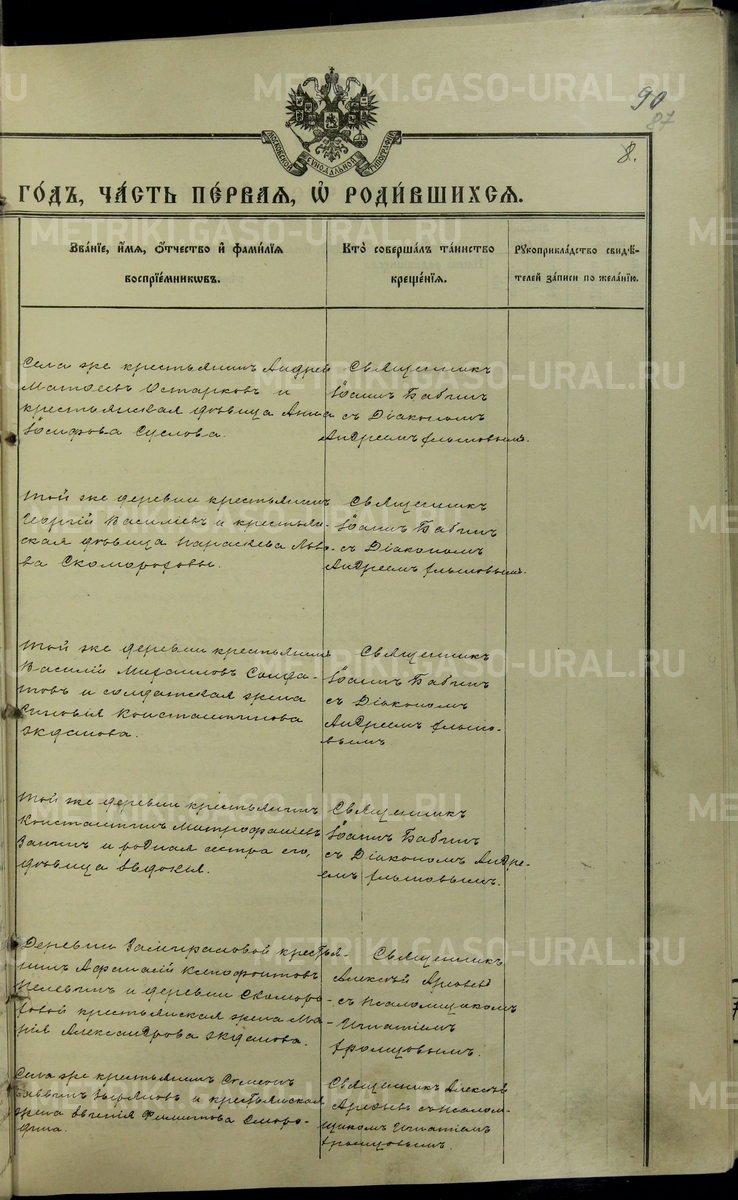 90
87
8.
МОСКОВСКОЙ СѴНОДАЛЬНОЙ ТИПОГРАФІИ
ГОДЪ, ЧАСТЬ ПЕРВАЯ, Ѡ РОДИВШИХСЯ.
Званіе, имя, отчество и фамилія
воспріемниковъ.
Кто совершалъ таинство
крещенія.
Рукоприкладство свидѣ-
телей записи по желанію.
Села же крестьянинъ Андрей
Матѳеевъ Остарковъ и
крестьянская дѣвица Анна
Іосифова Суслова.
Священникъ
Іоаннъ Бабинъ
съ Діакономъ
Андреемъ
Той же деревни крестьянинъ
Георгій Василіевъ и крестьян-
ская дѣвица Параскева Льво-
ва Скоморохова.
Священникъ
Іоаннъ Бабинъ
съ Діакономъ
Андреемъ
Той же деревни крестьянинъ
Василій Михаиловъ Солда-
товъ и солдатская жена
Зиновія Константинова
Жданова.
Священникъ
Іоаннъ Бабинъ
съ Діакономъ
Андреемъ
Той же деревни крестьянинъ
Константинъ Митрофаніевъ
Заинъ и родная сестра его,
дѣвица Евдокія.
Священникъ
Іоаннъ Бабинъ
съ Діакономъ Андре-
емъ
Деревни Замираловой крестья-
нинъ Афанасій Ксенофонтовъ
Пелевинъ и деревни Скоморо-
ховой крестьянская жена Ма-
рія Александрова Жданова.
Священникъ
Алексѣй
съ псаломщикомъ
Игнатіемъ
Села же крестьянинъ Симеонъ
Саввинъ Зыряновъ и крестьянская
жена Евгенія Филиппова Сморо-
дина.
Священникъ Алексѣй
съ псалом-
щикомъ Игнатіемъ
METRIKI.GASO-URAL.RU